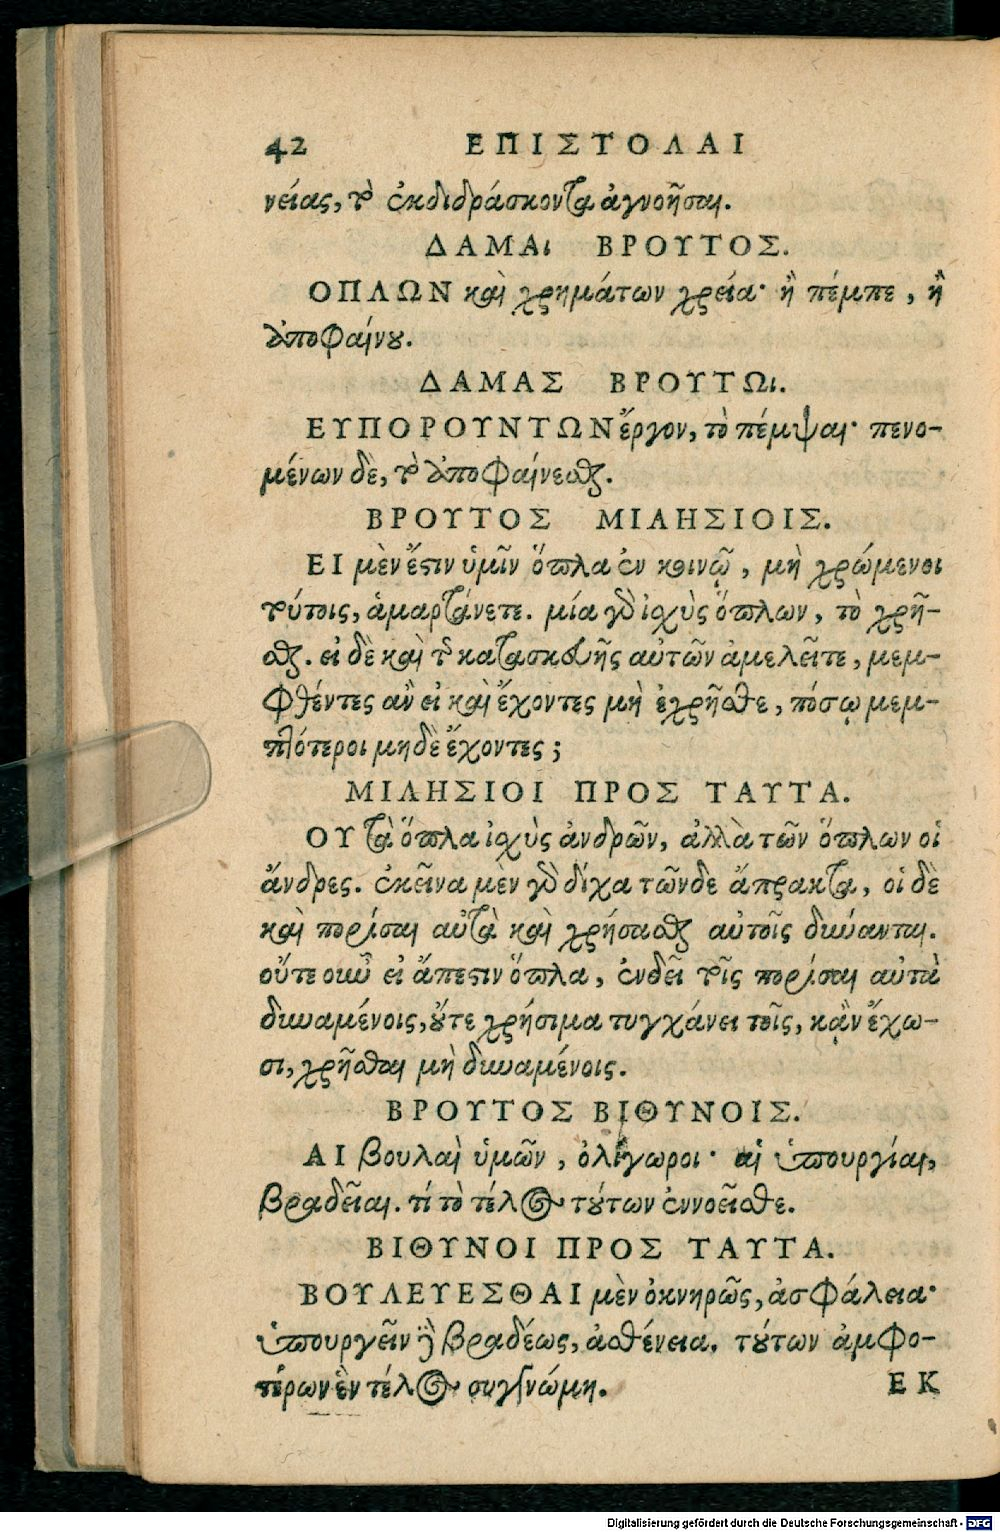 42 ΕΠΙΣΤΟΛΑΙ
νείας, τὸ ἐκδιδράσκοντα ἀγνοῆσαι.
ΔΑΜΑι ΒΡΟΥΤΟΣ.
ΟΠΛΩΝ καὶ χρημάτων χρεία· ἢ πέμπε, ἢ
ἀποφαίνου.
ΔΑΜΑΣ ΒΡΟΥΤΩι.
ΕΥΠΟΡΟΥΝΤΩΝ ἔργον, τὸ πέμψαι· πενο-
μένων δὲ, τὸ ἀποφαίνεσθαι.
ΒΡΟΥΤΟΣ ΜΙΛΗΣΙΟΙΣ.
ΕΙ μὲν ἔστιν ὑμῖν ὅπλα ἐν κοινῷ, μὴ χρώμενοι
τούτοις, ἁμαρτάνετε. μία γὸ ἰσχὺς ὅπλων, τὸ χρῆ-
σθαι. εἰ δὲ καὶ τῆς κατασκευῆς αὐτῶν ἀμελεῖτε, μεμ-
φθέντες ἂν εἰ καὶ ἔχοντες μὴ ἐχρῆσθε, πόσῳ μεμ-
πτότεροι μηδὲ ἔχοντες;
ΜΙΛΗΣΙΟΙ ΠΡΟΣ ΤΑΥΤΑ.
ΟΥ τὰ ὅπλα ἰσχὺς ἀνδρῶν, ἀλλὰ τῶν ὅπλων οἱ
ἄνδρες. ἐκεῖνα μὲν γὸ δίχα τῶνδε ἄπρακτα, οἱ δὲ
καὶ πορίσαι αὐτὰ καὶ χρήσασθαι αὐτοῖς δύνανται.
οὔτε οὖν εἰ ἄπεστιν ὅπλα, ἐνδεῖ τοῖς πορίσαι αὐτὰ
δυναμένοις, οὔτε χρήσιμα τυγχάνει τοῖς, κᾂν ἔχω-
σι, χρῆσθαι μὴ δυναμένοις.
ΒΡΟΥΤΟΣ ΒΙΘΥΝΟΙΣ.
ΑΙ βουλαὶ ὑμῶν, ὀλίγωροι· αἱ ὑπουργίαι,
βραδεῖαι. τί τὸ τέλος τούτων ἐννοεῖσθε.
ΒΙΘΥΝΟΙ ΠΡΟΣ ΤΑΥΤΑ.
ΒΟΥΛΕΥΕΣΘΑΙ μὲν ὀκνηρῶς, ἀσφάλεια·
ὑπουργεῖν δὲ βραδέως, ἀσθένεια. τούτων ἀμφο-
τέρων ἓν τέλος συγγνώμη. ΕΚ
Digitalisierung gefördert durch die Deutsche Forschungsgemeinschaft - DFG